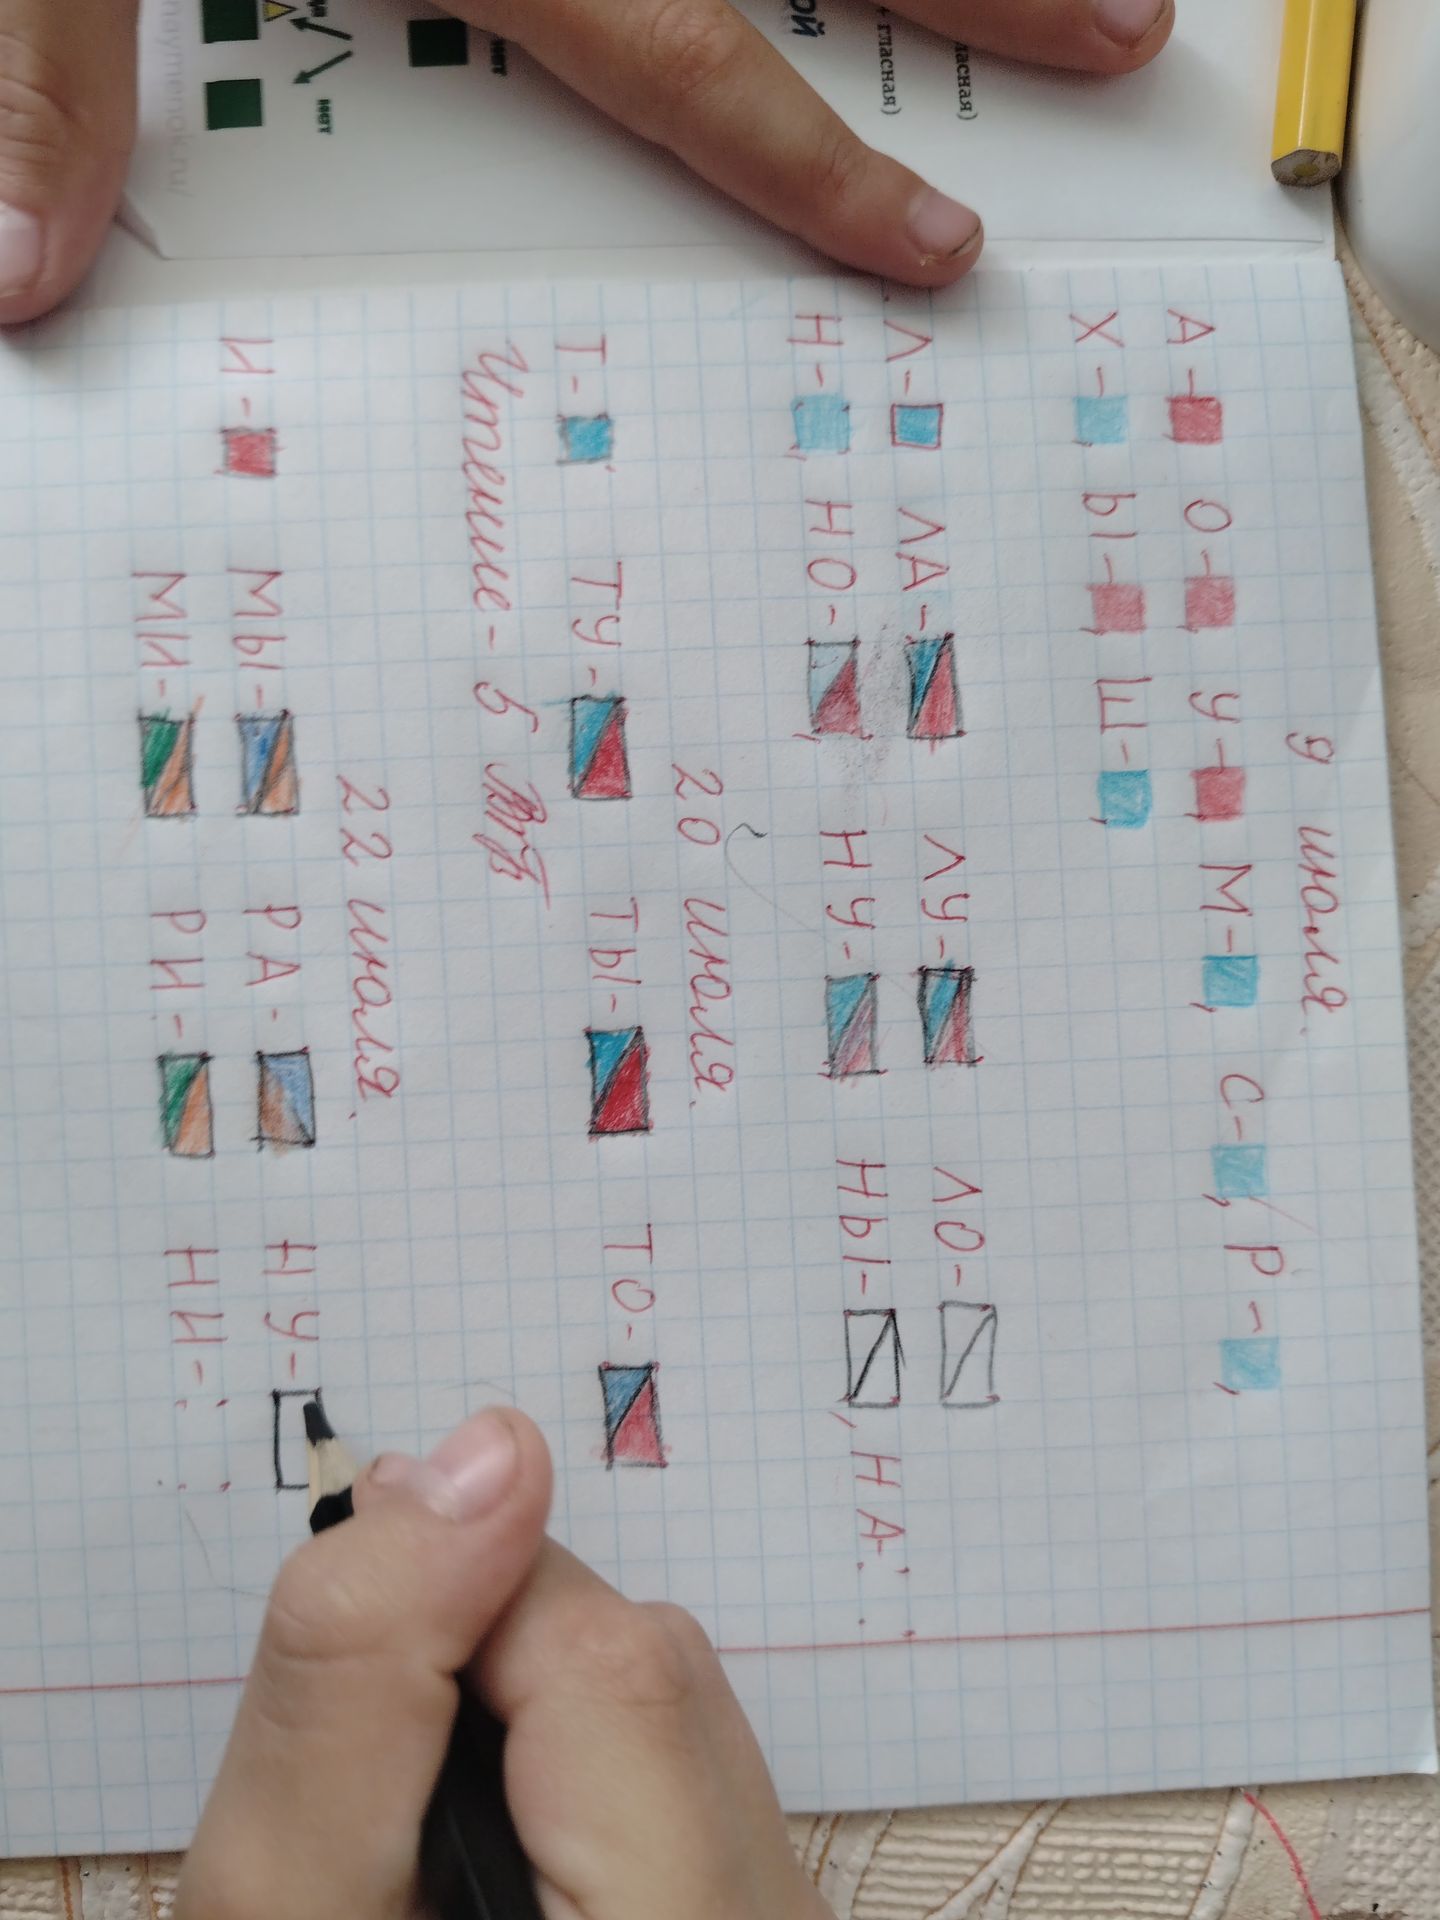 9 июля.
А- О- У- М- , С- , Р- ,
Х- , Ы- , Ш- ,
Л- ЛА- ЛУ- ЛО-
Н- , НО- , НУ- НЫ- , НА-
20 июля.
Т- ТУ- ТЫ- ТО-
Чтение - 5
22 июля.
И- МЫ- РА- НУ-
МИ- РИ- НИ-
гласная)
+ гласная)
ой
нет
нет
naymenok.ru/